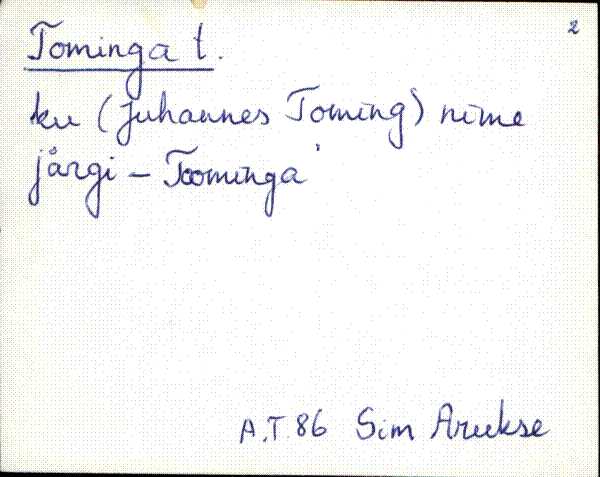 2
Tominga t.
ku (Juhannes Toming) nime
järgi – Toominga
A.T. 86 Sim Arukse